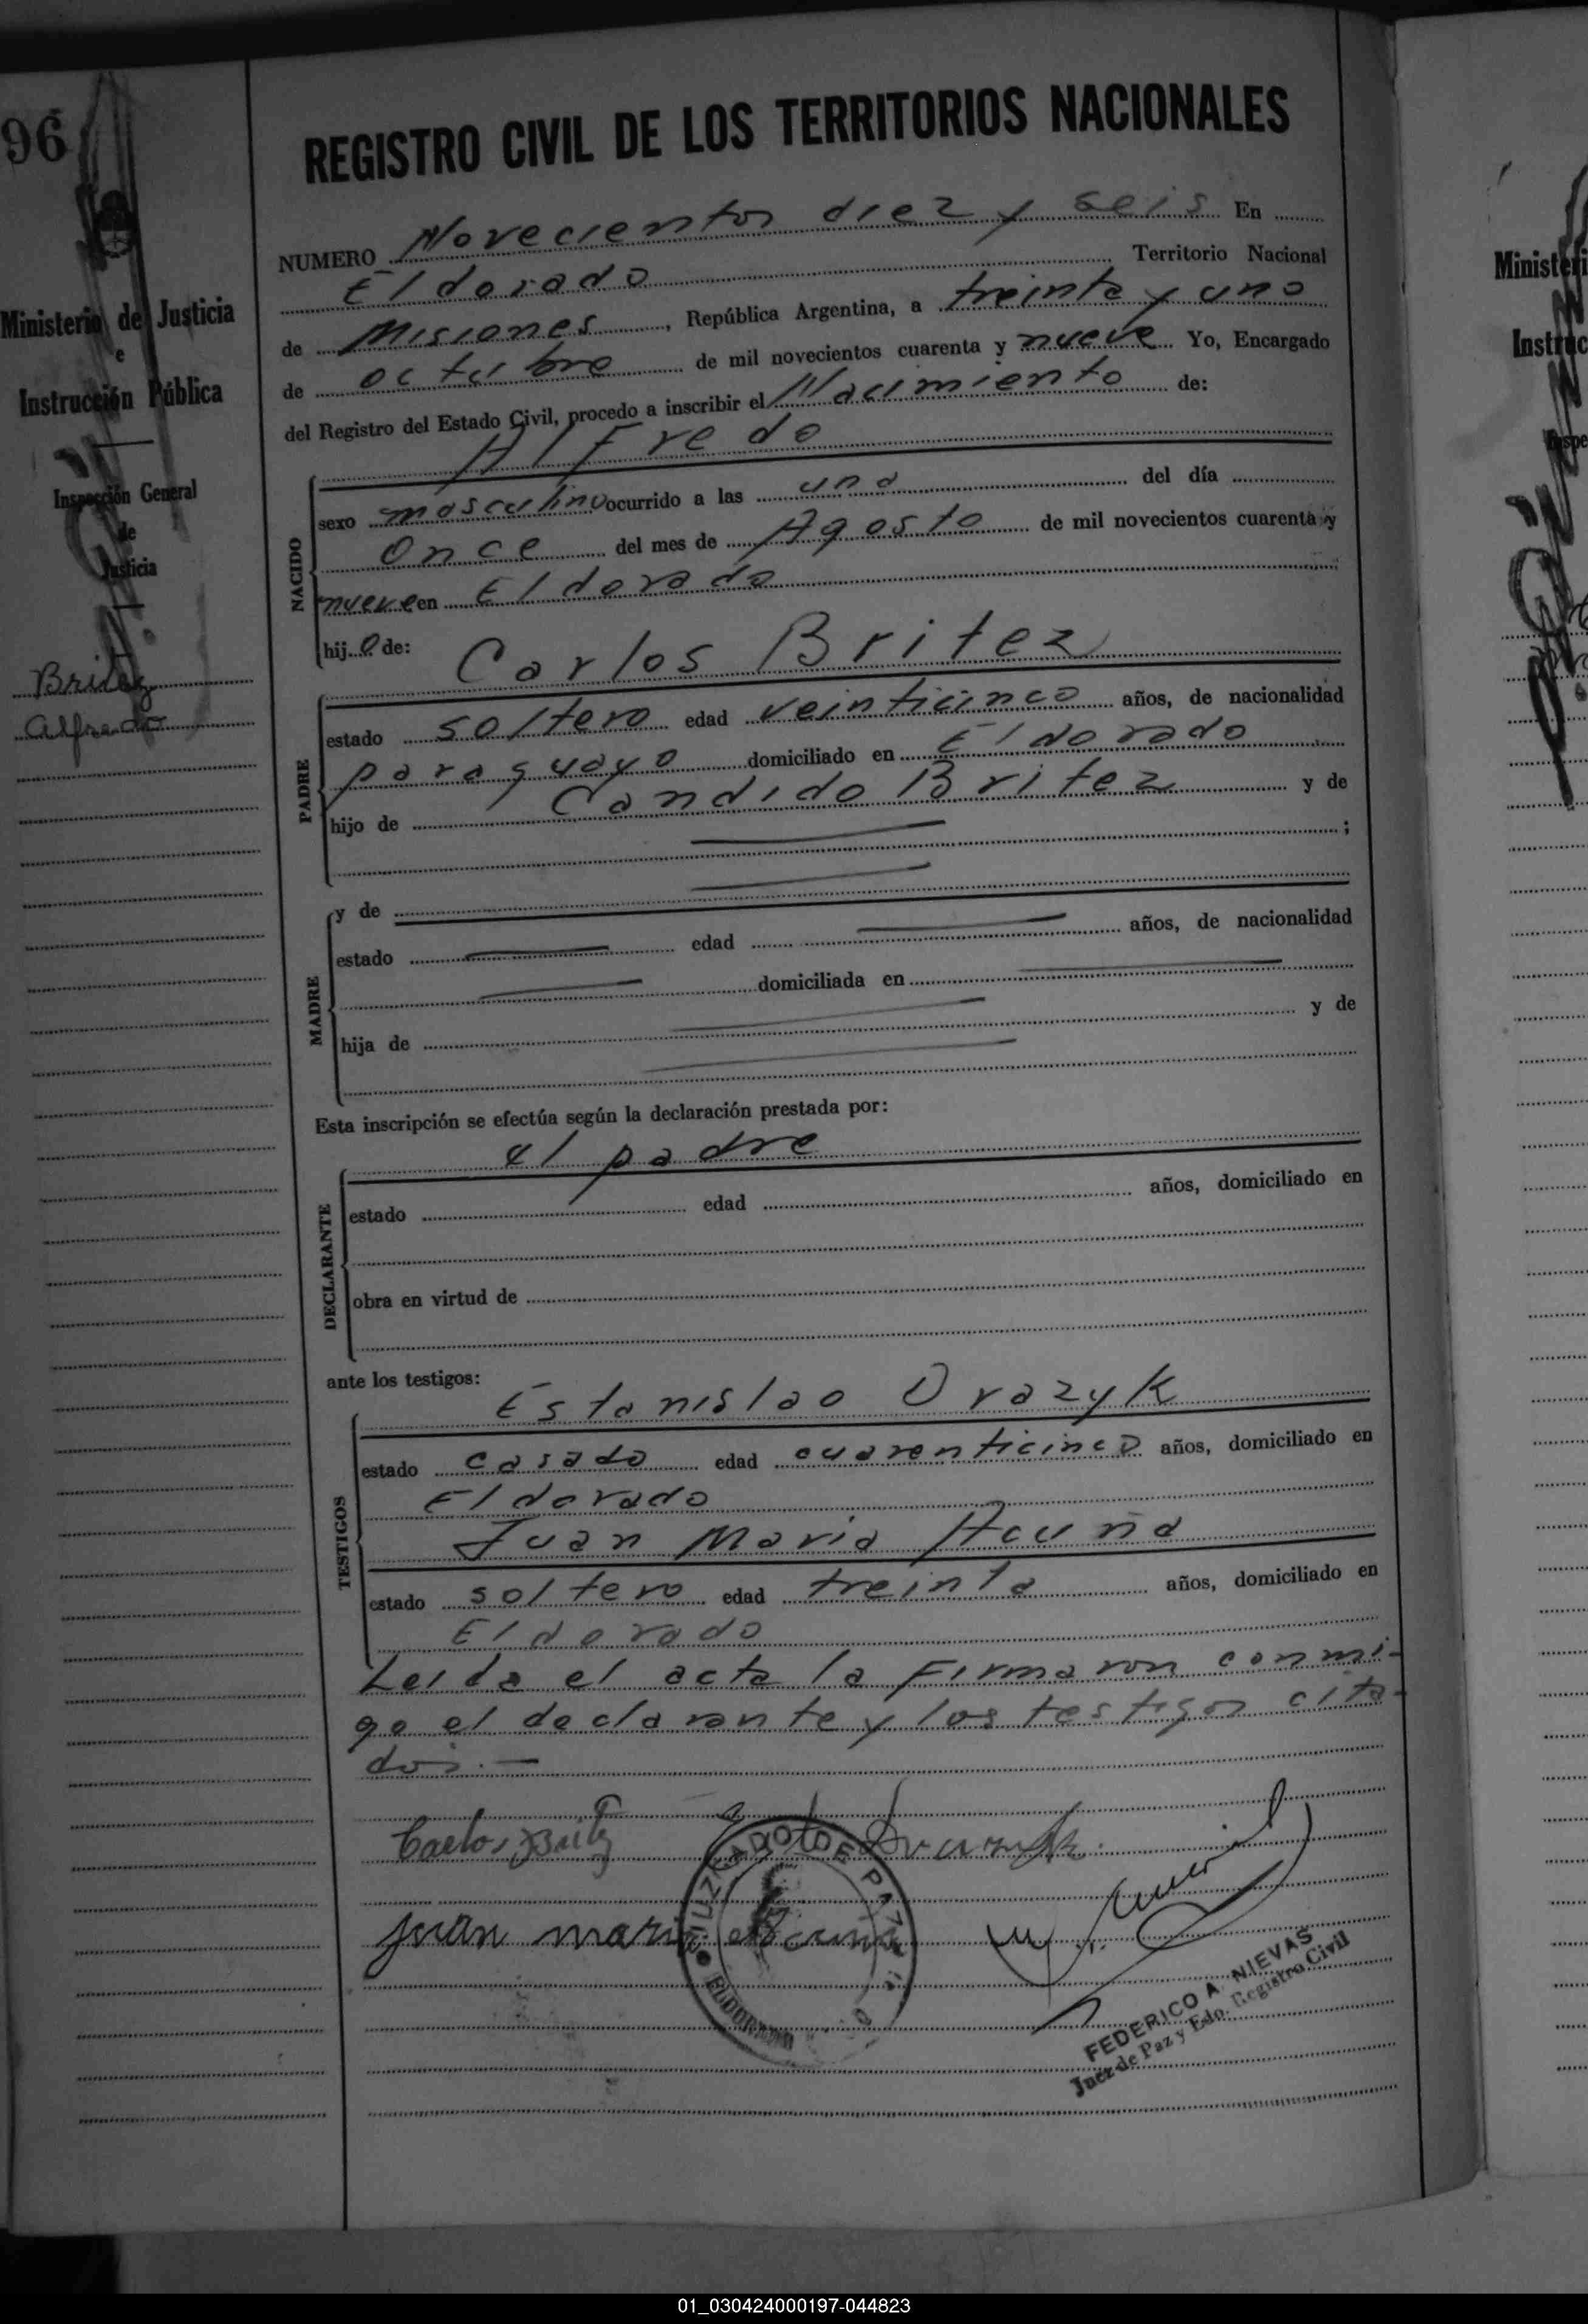 96
REGISTRO CIVIL DE LOS TERRITORIOS NACIONALES
NUMERO Novecientos diez y seis En
Eldorado Territorio Nacional
de Misiones, República Argentina, a treinta y uno
de octubre de mil novecientos cuarenta y nueve Yo, Encargado
del Registro del Estado Civil, procedo a inscribir el Nacimiento de:
Alfredo
NACIDO
sexo masculino ocurrido a las una del día
Once del mes de Agosto de mil novecientos cuarenta y
nueve en Eldorado
hijo de:
Carlos Britez
PADRE
estado soltero edad veinticinco años, de nacionalidad
paraguayo domiciliado en Eldorado
hijo de Candido Britez y de
;
MADRE
y de
estado edad años, de nacionalidad
domiciliada en
hija de y de
Esta inscripción se efectúa según la declaración prestada por:
el padre
DECLARANTE
estado edad años, domiciliado en
obra en virtud de
ante los testigos:
Estanislao Drazyk
TESTIGOS
estado casado edad cuarenticinco años, domiciliado en
Eldorado
Juan Maria Acuña
estado soltero edad treinta años, domiciliado en
Eldorado
Leida el acta la firmaron conmi-
go el declarante y los testigos cita-
dos.—
Carlos Britez
Juan maria Acuña
JUZGADO DE PAZ
ELDORADO
FEDERICO A. NIEVAS
Juez de Paz y Edo. Registro Civil
Ministerio de Justicia
e
Instrucción Pública
Inspección General
de
Justicia
Britez
Alfredo
Ministeri
Instruc
Inspe
01_030424000197-044823